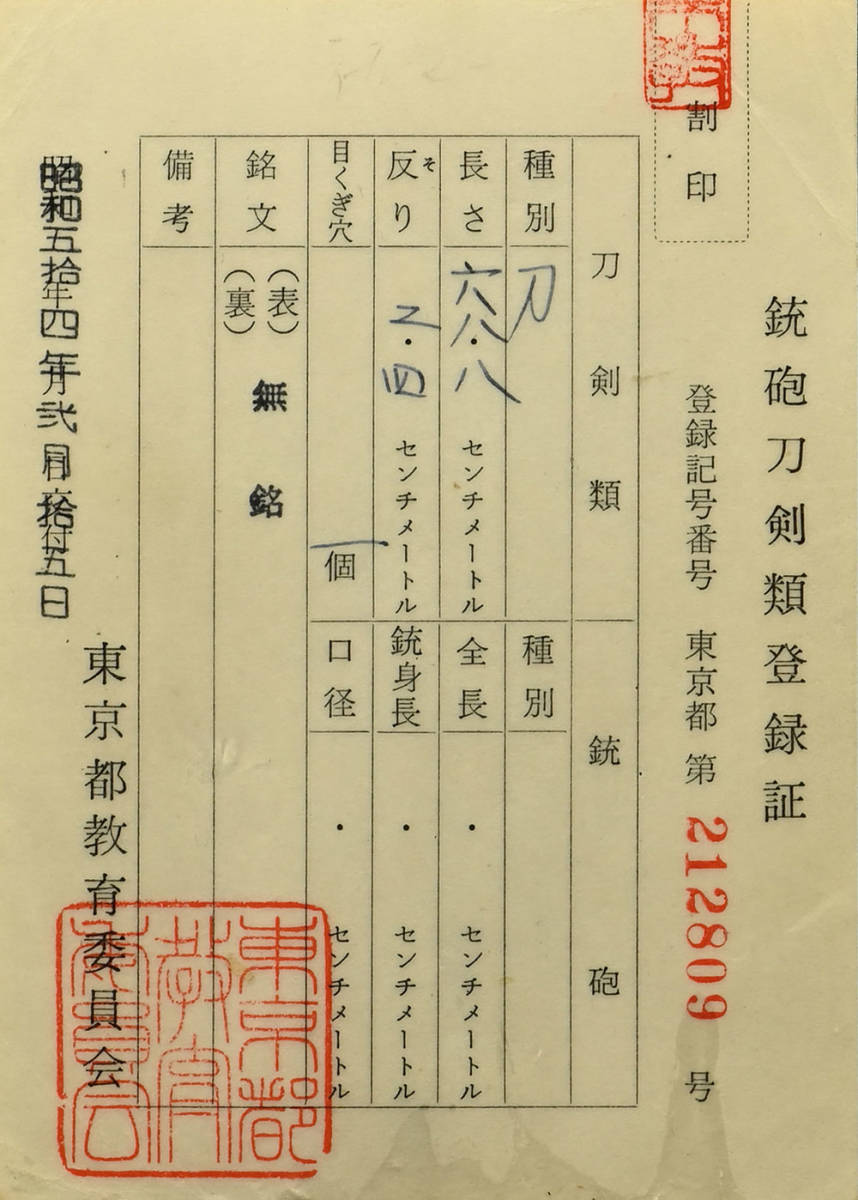 銃砲刀剣類登録証
割印
登録記号番号 東京都 第 212809 号
刀剣類
銃砲
種別 刀
種別
長さ 六八・八 センチメートル
全長 ・ センチメートル
反り そ 二・四 センチメートル
銃身長 ・ センチメートル
目くぎ穴 一個
口径 ・ センチメートル
銘文 (表) 無銘
(裏)
備考
東京都教育委員会
昭和五拾四年弐月拾五日
東京都
教育
委員会